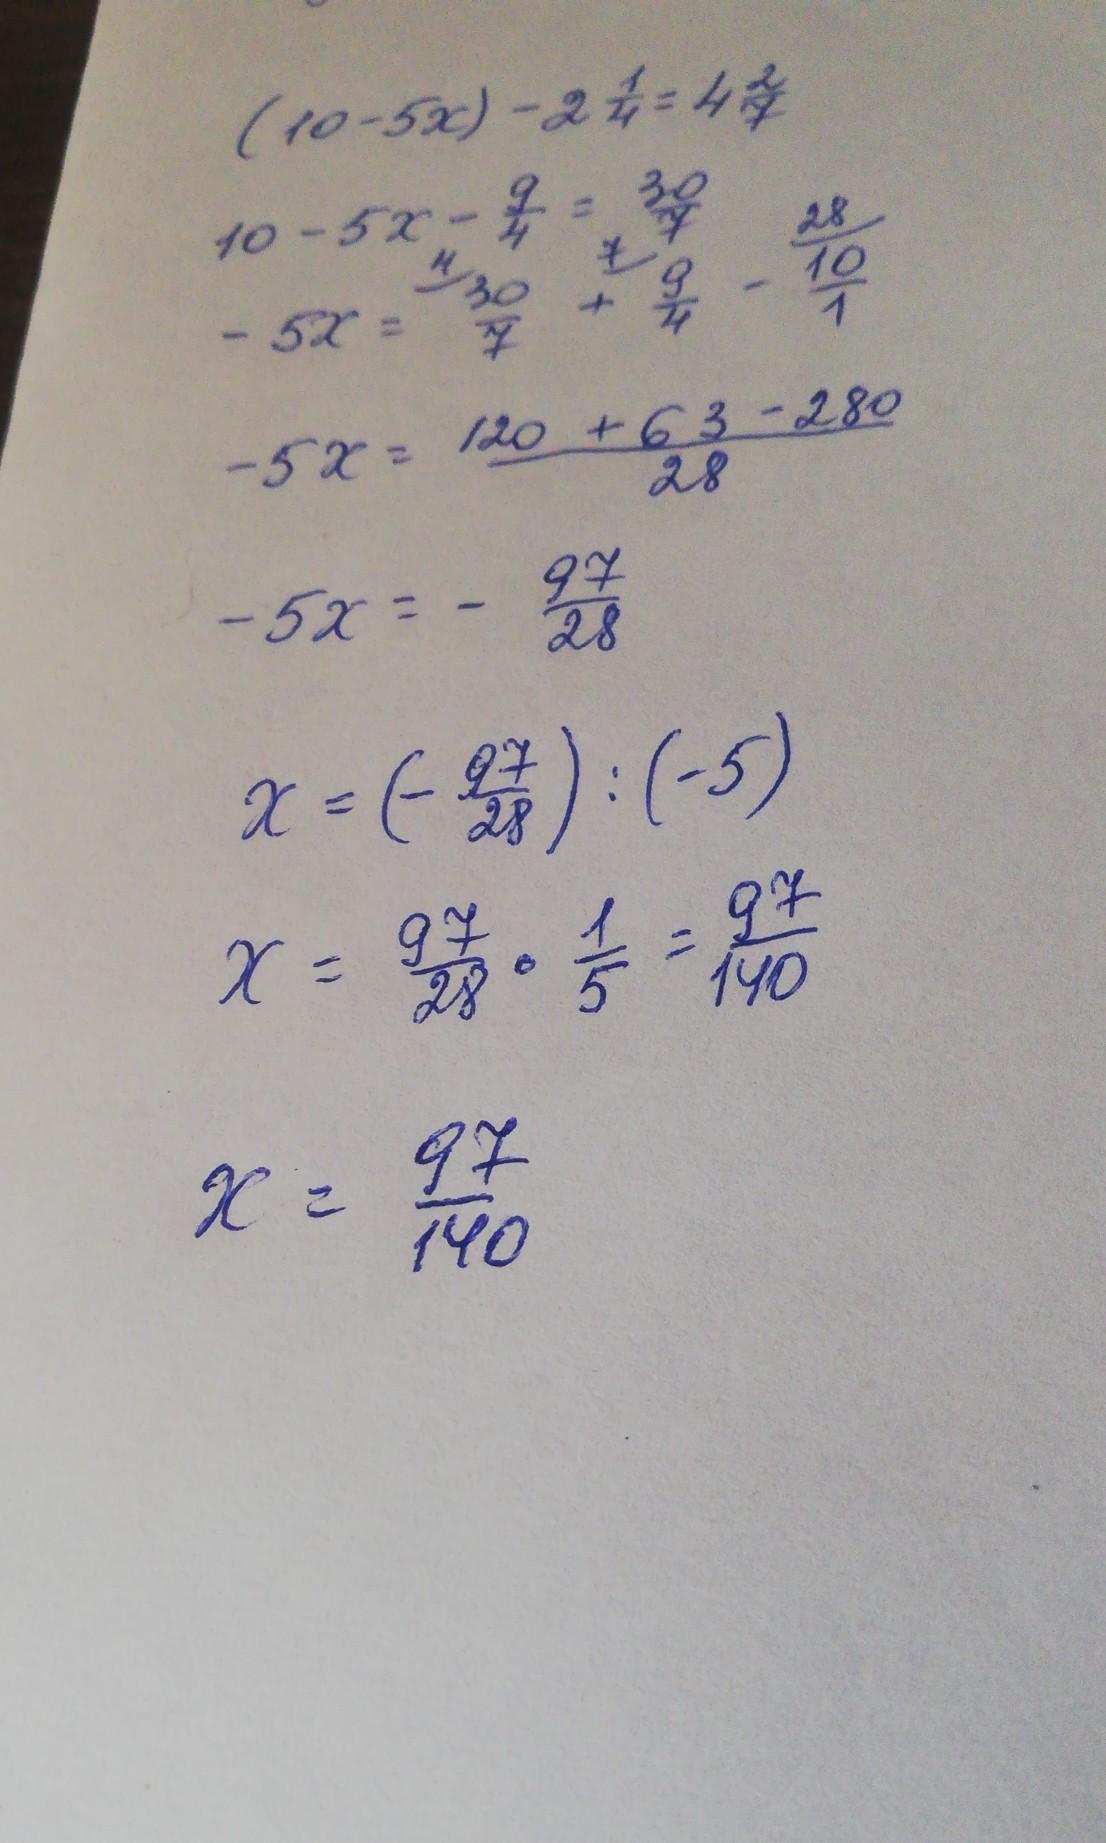 (10-5x) - 2 1/4 = 4 2/7
10 - 5x - 9/4 = 30/7
- 5x = 4/ 30/7 + 7/ 9/4 - 28/ 10/1
- 5x = (120 + 63 - 280)/28
- 5x = - 97/28
x = (- 97/28) : (-5)
x = 97/28 · 1/5 = 97/140
x = 97/140